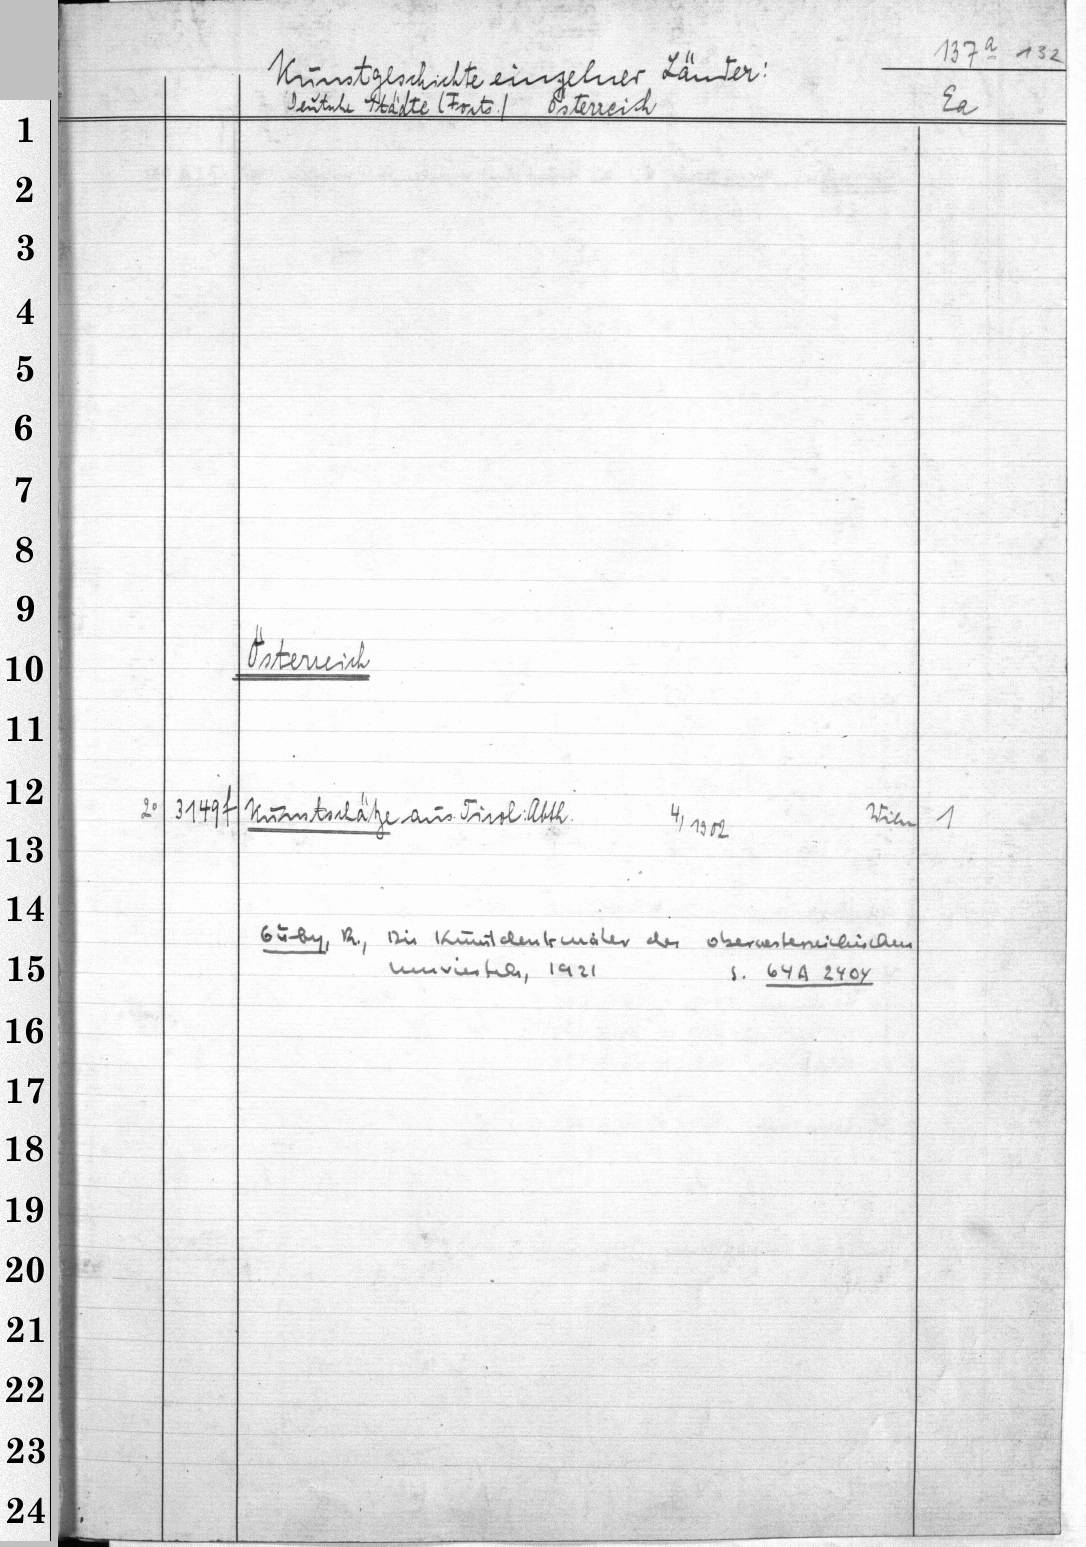 137a 132
Kunstgeschichte einzelner Länder:
Deutsche Städte (Forts.) Österreich Ea
1
2
3
4
5
6
7
8
9
Österreich
10
11
12
2° 3149f Kunstschätze aus Tirol: Abth. 4, 1902 Wien 1
13
14
Guby, R., Die Kunstdenkmäler des oberoesterreichischen
15 Innviertels, 1921 s. 64A 2404
16
17
18
19
20
21
22
23
24